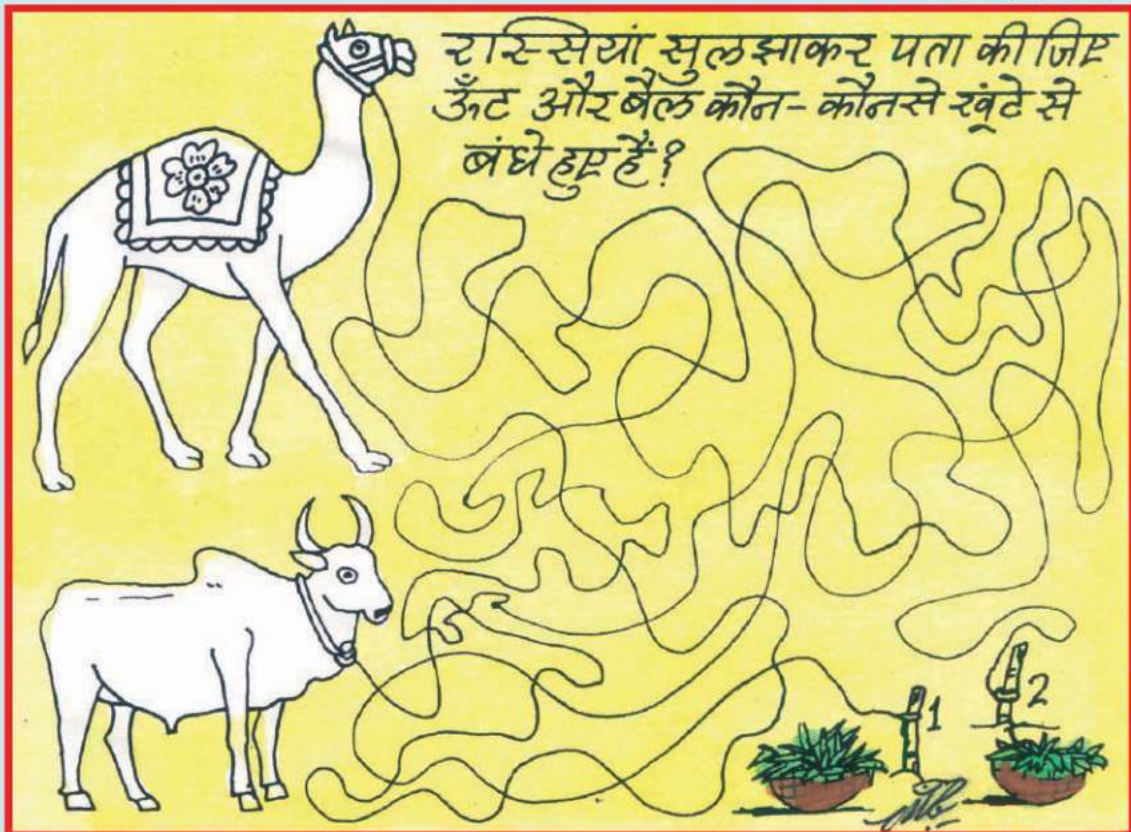 रास्सियां सुलझाकर पता कीजिए
ऊँट और बैल कौन-कौनसे खूंटे से
बंधे हुए हैं?
1
2